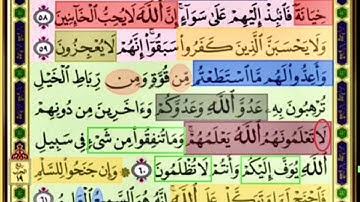 خِيَانَةً فَانۢبِذْ إِلَيْهِمْ عَلَىٰ سَوَآءٍ ۚ إِنَّ ٱللَّهَ لَا يُحِبُّ ٱلْخَآئِنِينَ ٥٨
وَلَا يَحْسَبَنَّ ٱلَّذِينَ كَفَرُوا۟ سَبَقُوٓا۟ ۚ إِنَّهُمْ لَا يُعْجِزُونَ ٥٩
وَأَعِدُّوا۟ لَهُم مَّا ٱسْتَطَعْتُم مِّن قُوَّةٍ وَمِن رِّبَاطِ ٱلْخَيْلِ
تُرْهِبُونَ بِهِۦ عَدُوَّ ٱللَّهِ وَعَدُوَّكُمْ وَءَاخَرِينَ مِن دُونِهِمْ
لَا تَعْلَمُونَهُمُ ٱللَّهُ يَعْلَمُهُمْ ۚ وَمَا تُنفِقُوا۟ مِن شَىْءٍ فِى سَبِيلِ
ٱللَّهِ يُوَفَّ إِلَيْكُمْ وَأَنتُمْ لَا تُظْلَمُونَ ٦٠ وَإِن جَنَحُوا۟ لِلسَّلْمِ